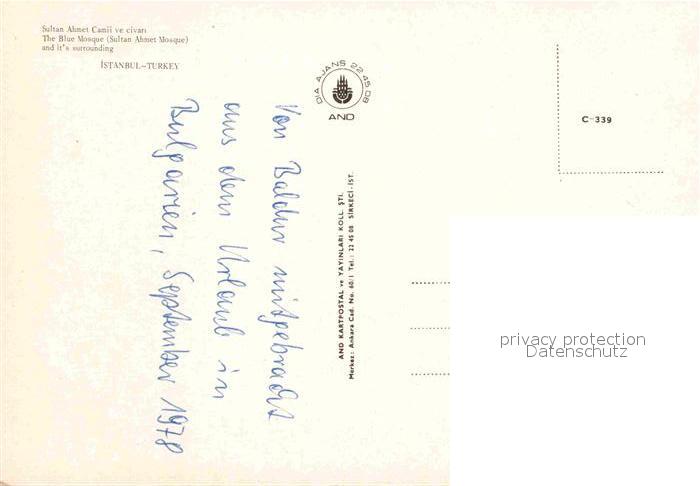 Sultan Ahmet Camii ve civarı
The Blue Mosque (Sultan Ahmet Mosque)
and it's surrounding
İSTANBUL-TURKEY
DIA AJANS 22 45 08
AND
C-339
Von Baldur mitgebracht
aus dem Urlaub in
Bulgarien, September 1978
AND KARTPOSTAL ve YAYINLARI KOLL. ŞTİ.
Merkez: Ankara Cad. No. 60/1 Tel.: 22 45 08 SİRKECİ-İST.
privacy protection
Datenschutz